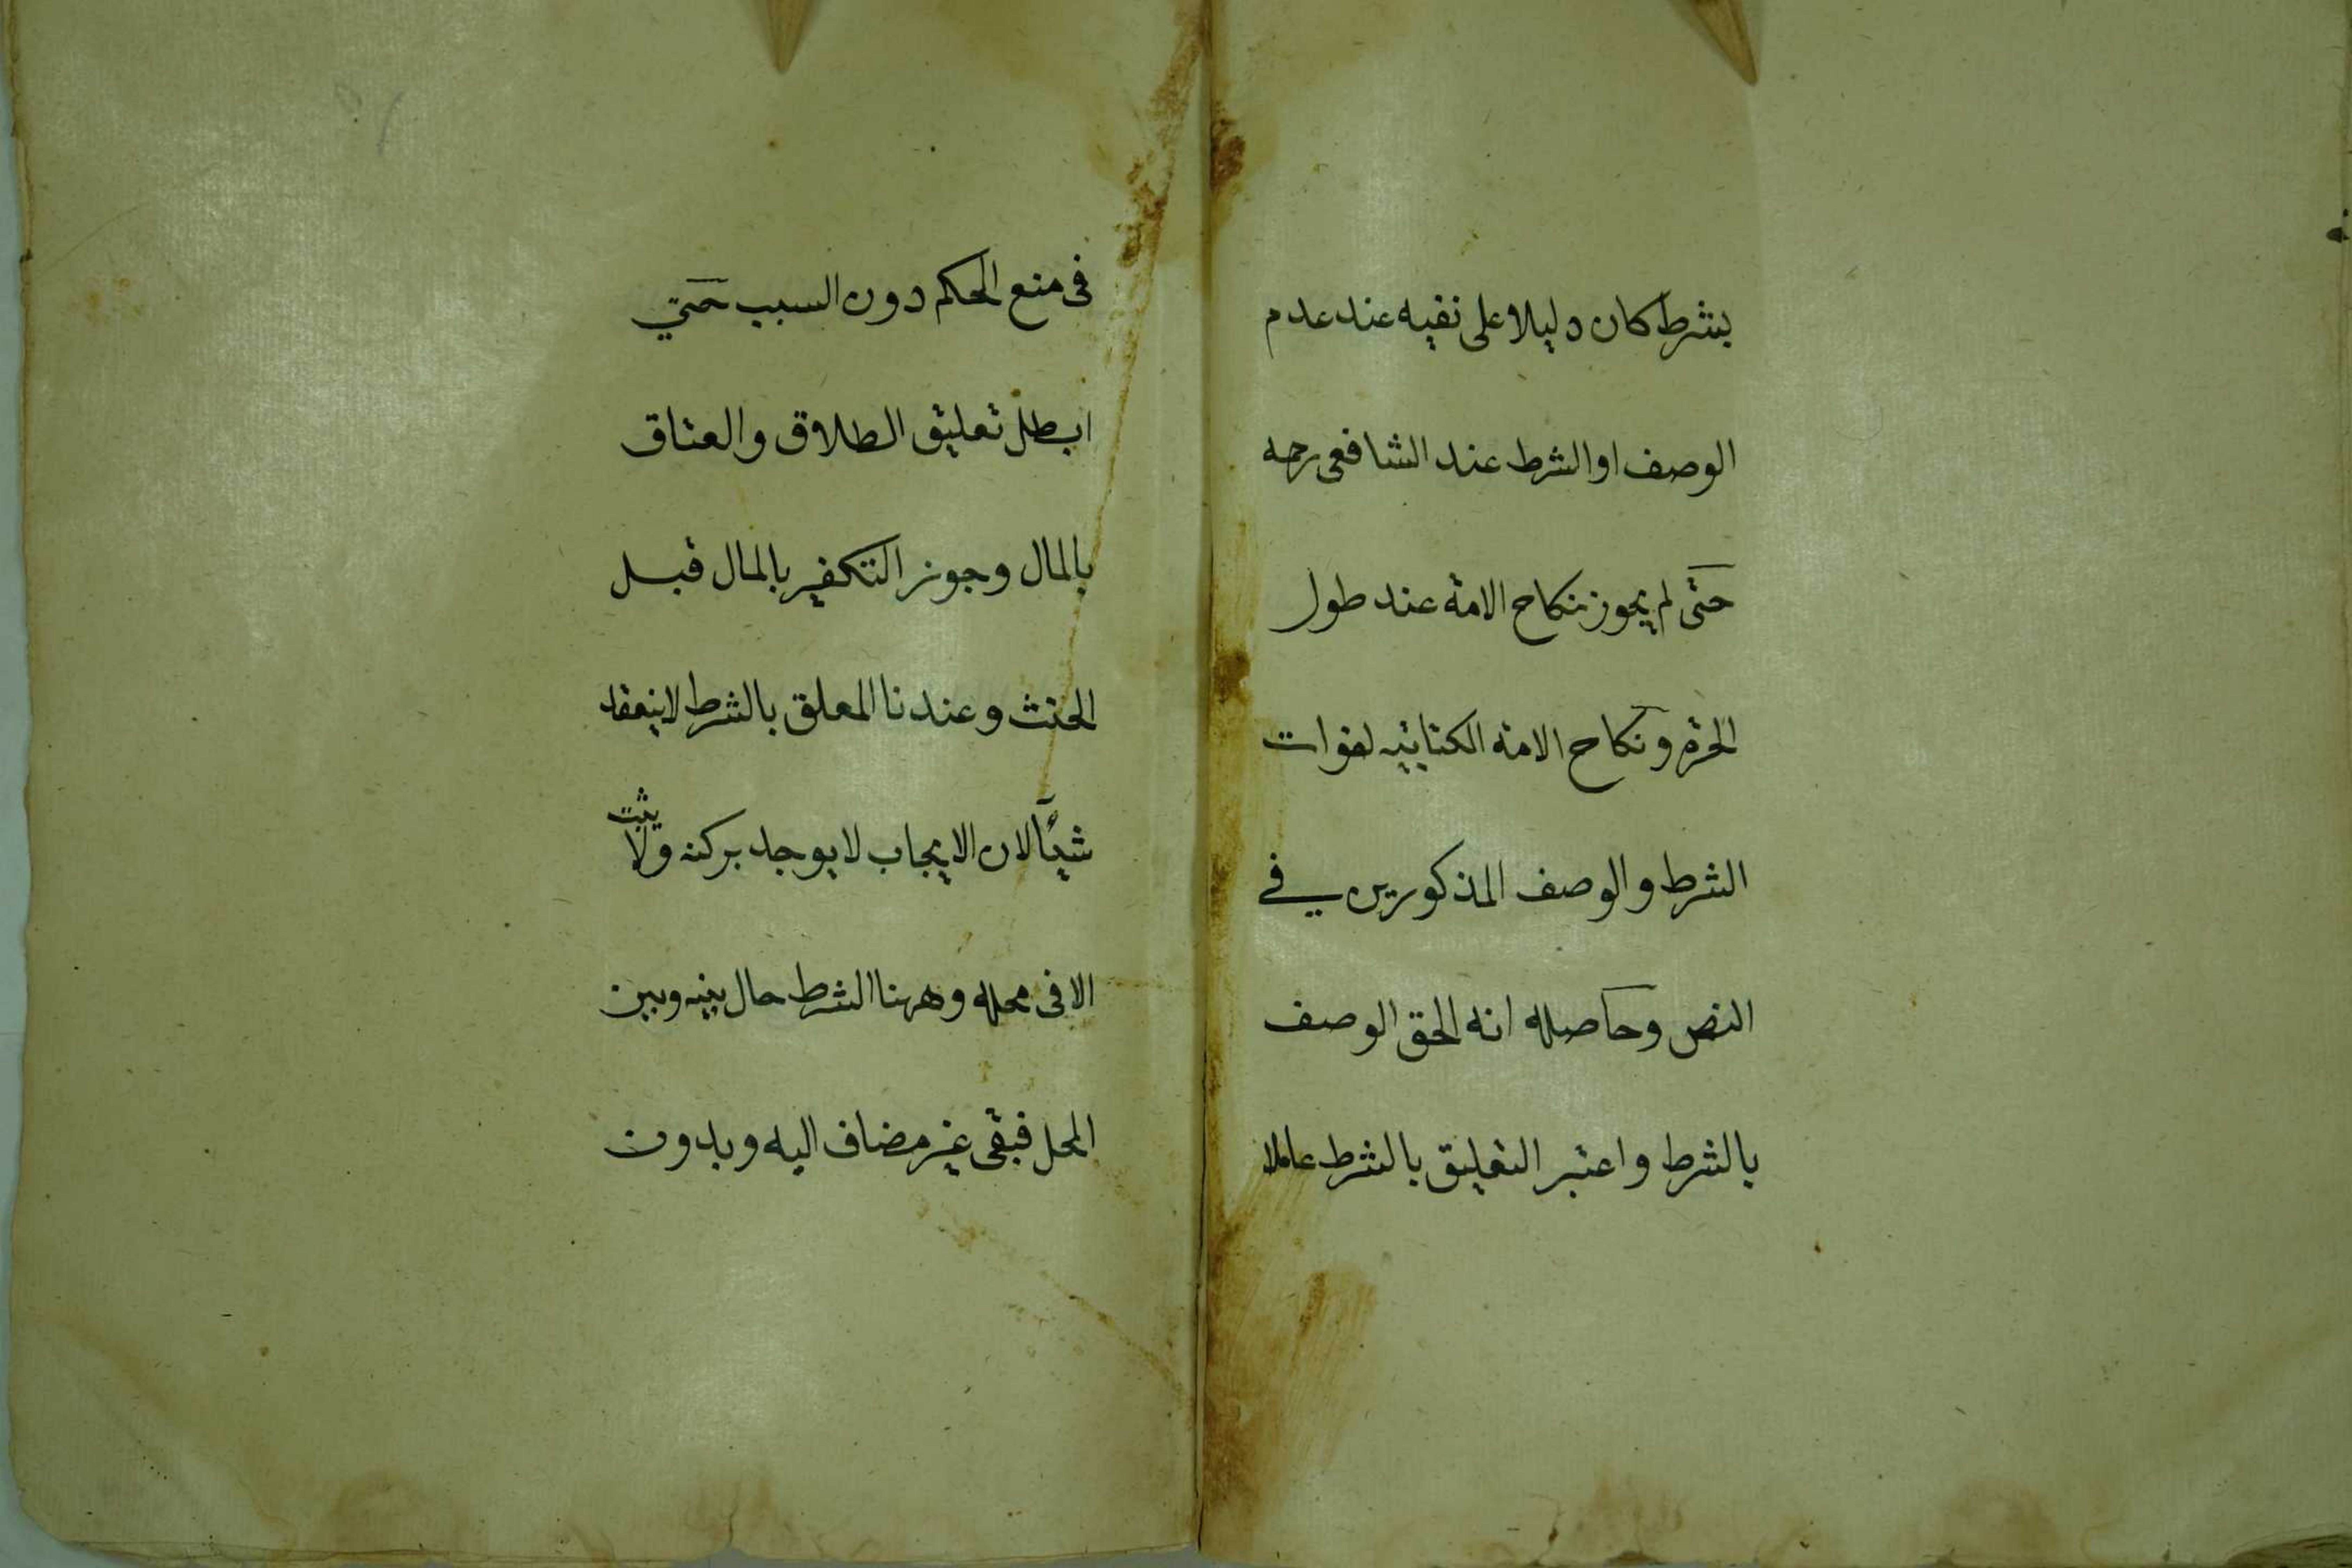 بشرط كان دليلا على نفيه عند عدم
الوصف او الشرط عند الشافعى رحمه
حتى لم يجوز نكاح الامة عند طول
الحرة ونكاح الامة الكتابيه لفوات
الشرط والوصف المذكورين في
النص وحاصله انه الحق الوصف
بالشرط واعتبر التعليق بالشرط عاملا
فى منع الحكم دون السبب حتي
ابطل تعليق الطلاق والعتاق
بالمال وجوز التكفير بالمال قبل
الحنث وعندنا المعلق بالشرط لا ينعقد
شيئا لان الايجاب لا يوجد بركنه ولا يثبت
الا فى محله وههنا الشرط حال بينه وبين
المحل فبقى غير مضاف اليه وبدون